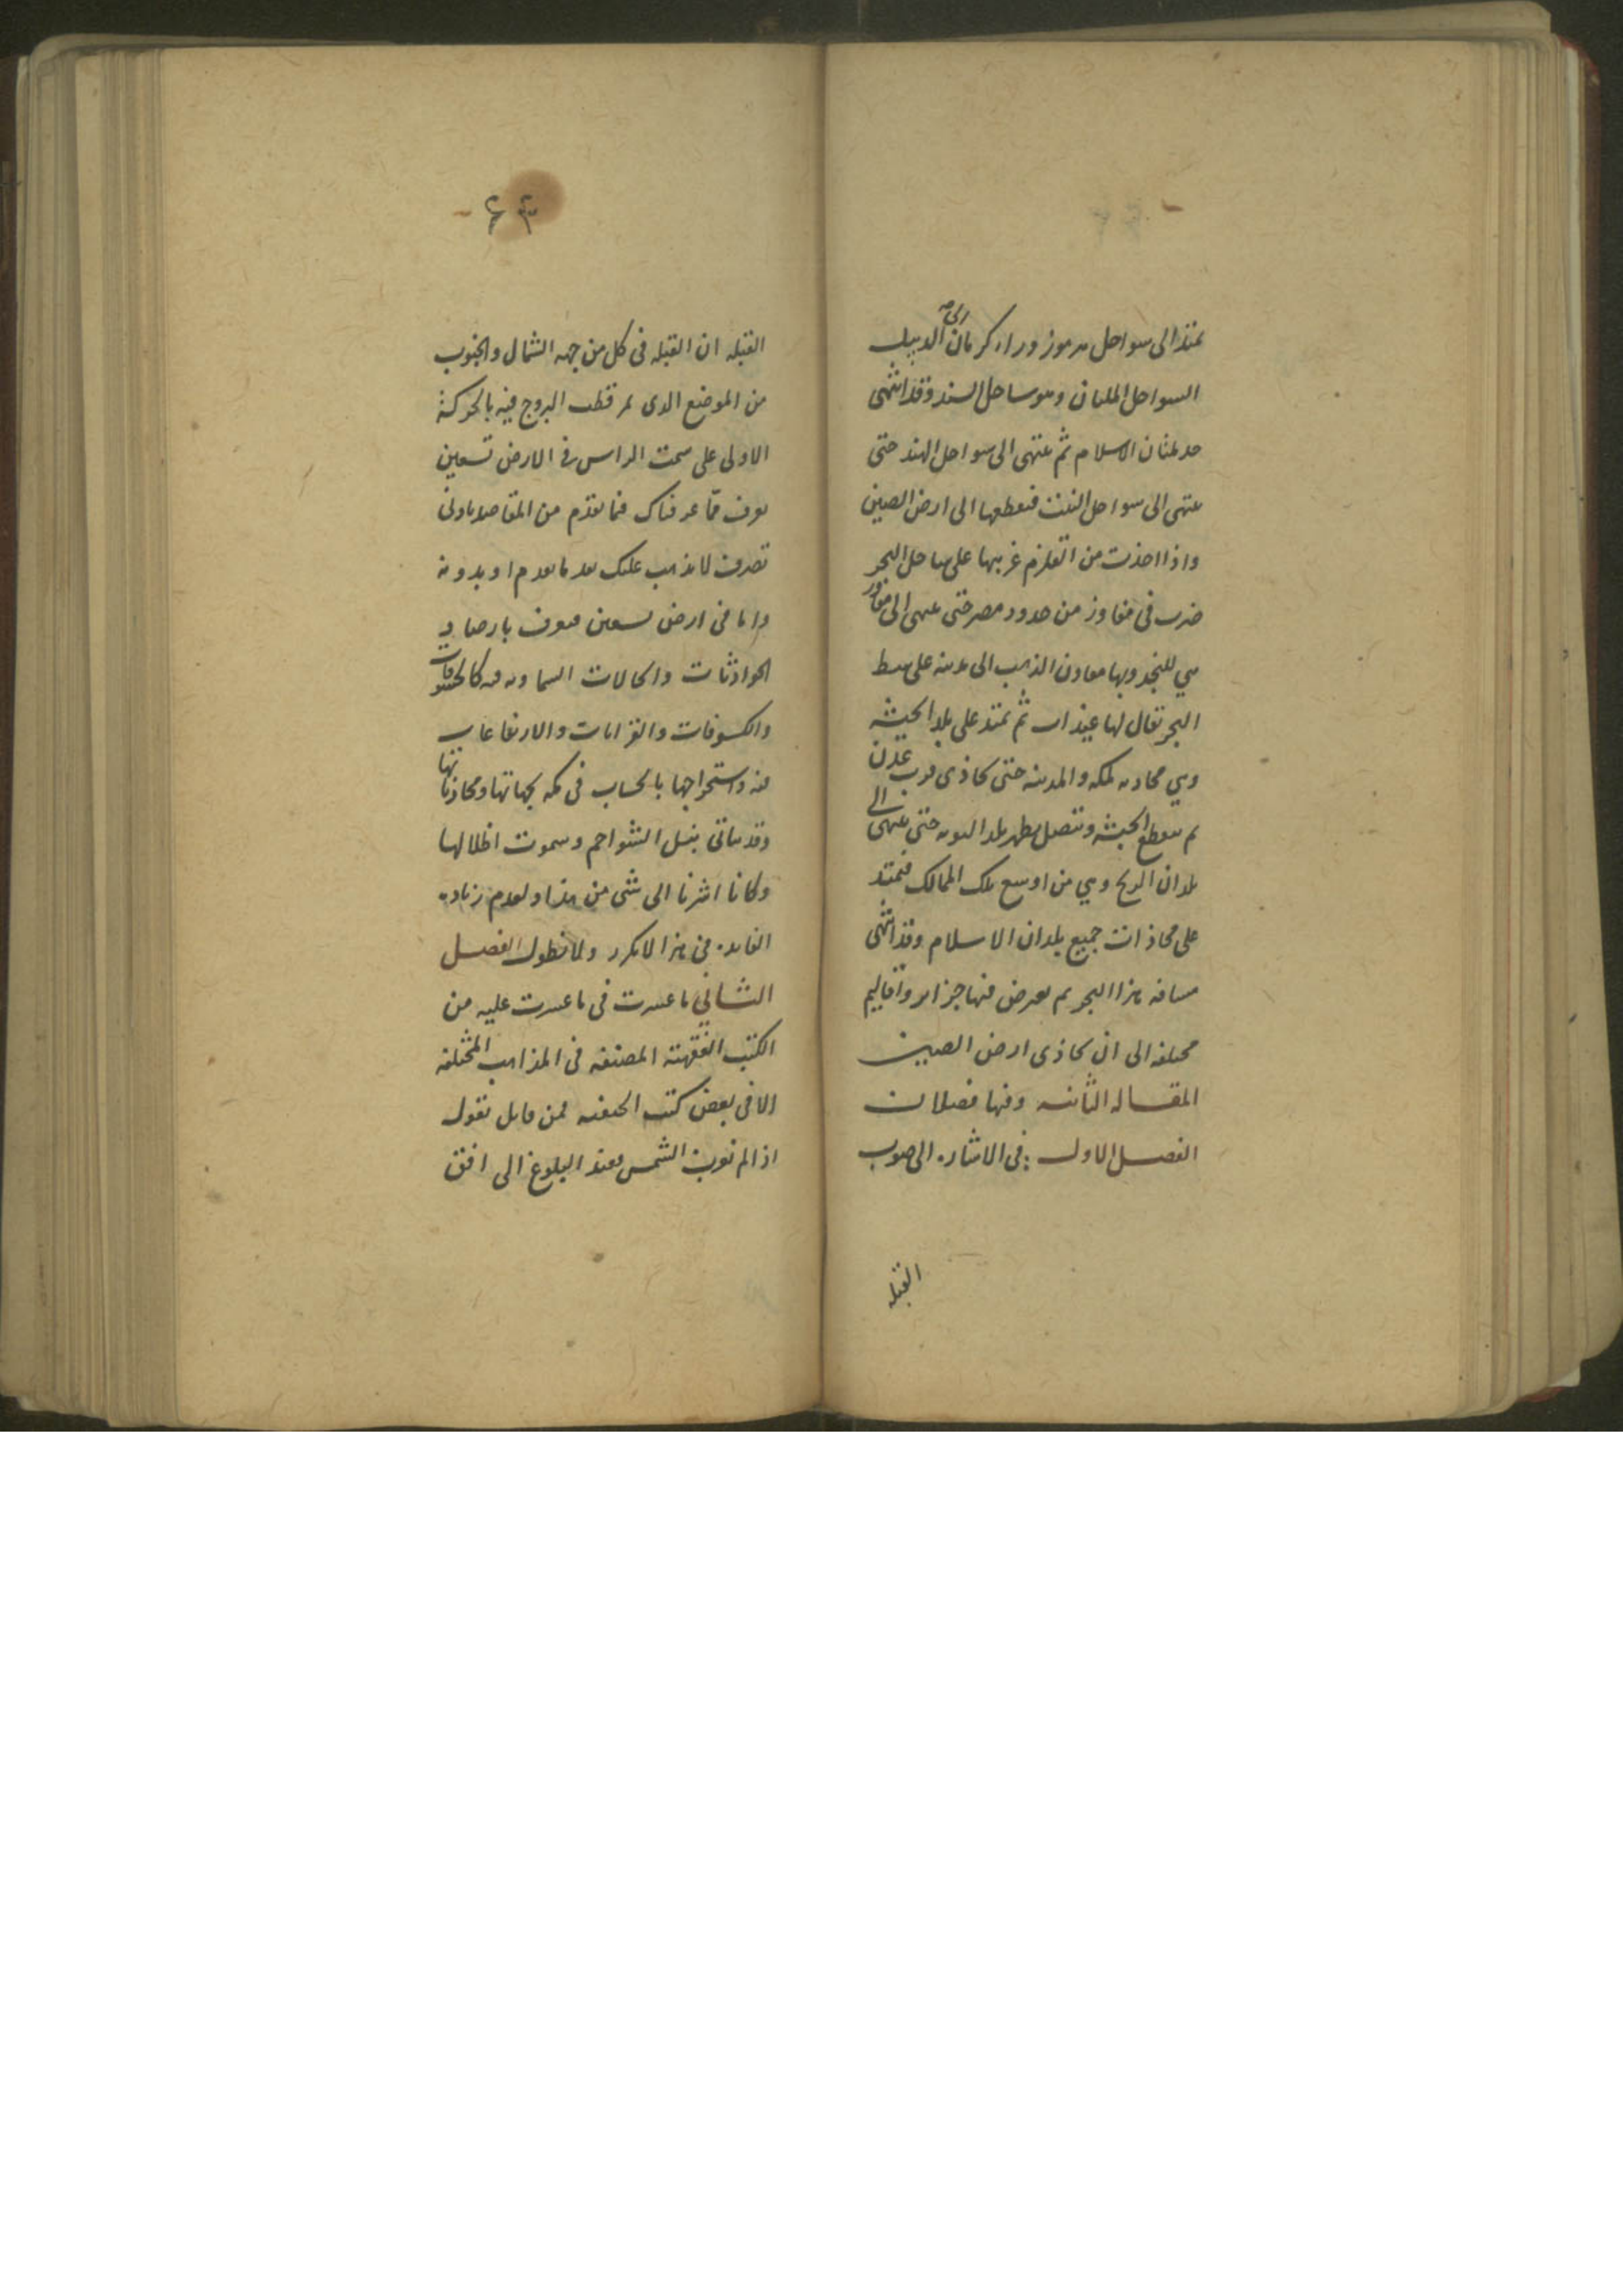 يمتد الى سواحل هرموز وراء كرمان الى الديبل
السواحل الملتان وهو ساحل السند وقد انتهى
حد بلدان الاسلام ثم ينتهى الى سواحل الهند حتى
ينتهى الى سواحل التبت فيقطعها الى ارض الصين
واذا اخذت من القلزم غربيها على ساحل البحر
ضرب فى مفاوز من حدود مصر حتى ينتهى الى مفاوز
هي للبجه وبها معادن الذهب الى مدينه على شط
البحر تقال لها عيذاب ثم يمتد على بلد الحبشه
وهي محاذيه لمكه والمدينه حتى يحاذى قرب عدن
ثم يقطع الحبشه ويتصل بظهر بلد النوبه حتى ينتهى الى
بلدان الزنج وهي من اوسع تلك الممالك فيمتد
على محاذات جميع بلدان الاسلام وقد انتهى
مسافه هذا البحر ثم يعرض فيها جزاير واقاليم
مختلفه الى ان يحاذى ارض الصين
المقاله الثانيه وفيها فصلان
الفصل الاول : فى الاشاره الى صوب
القبله
٦٣
القبله ان القبله فى كل من جهه الشمال والجنوب
من الموضع الذى يمر قطب البروج فيه بالحركة
الاولى على سمت الراس فى الارض تسعين
يعرف مما عرفناك فيما تقدم من المقاصد بادنى
تصرف لا يذهب عليك بعد ما تقدم او بدونه
واما فى ارض تسعين فيعرف بارصاد
الحوادثات والحالات السماويه فيه كالخسوفات
والكسوفات والقرانات والارتفاعات
فيه واستخراجها بالحساب فى مكه بجهاتها ومحاذياتها
وقد يتاتى بنيل الشواحم وسموت اظلالها
وكانا اشرنا الى شى من هذا ولعدم زياده
الفايده فى هذا لا نكرر ولا نطول الفصل
الثاني ما عثرت فى ما عثرت عليه من
الكتب الفقهية المصنفه فى المذاهب المختلفه
الا فى بعض كتب الحنفيه فمن قايل تقول
اذا لم تغرب الشمس فعند البلوغ الى افق